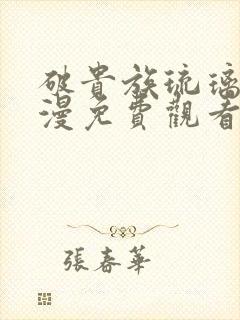 破貴族琉璃
漫免費觀看
張春華